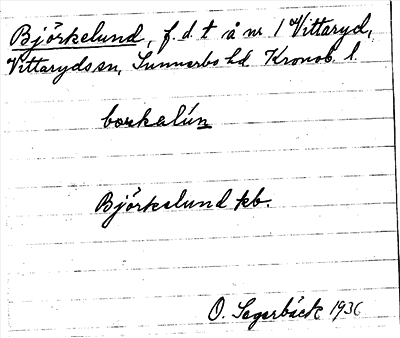 Björkelund, f.d. t å nr 1 Vittaryd,
Vittaryds sn, Sunnerbo hd Kronob. l.
borkalún
Björkelund kb.
O. Sagerbäck 1936